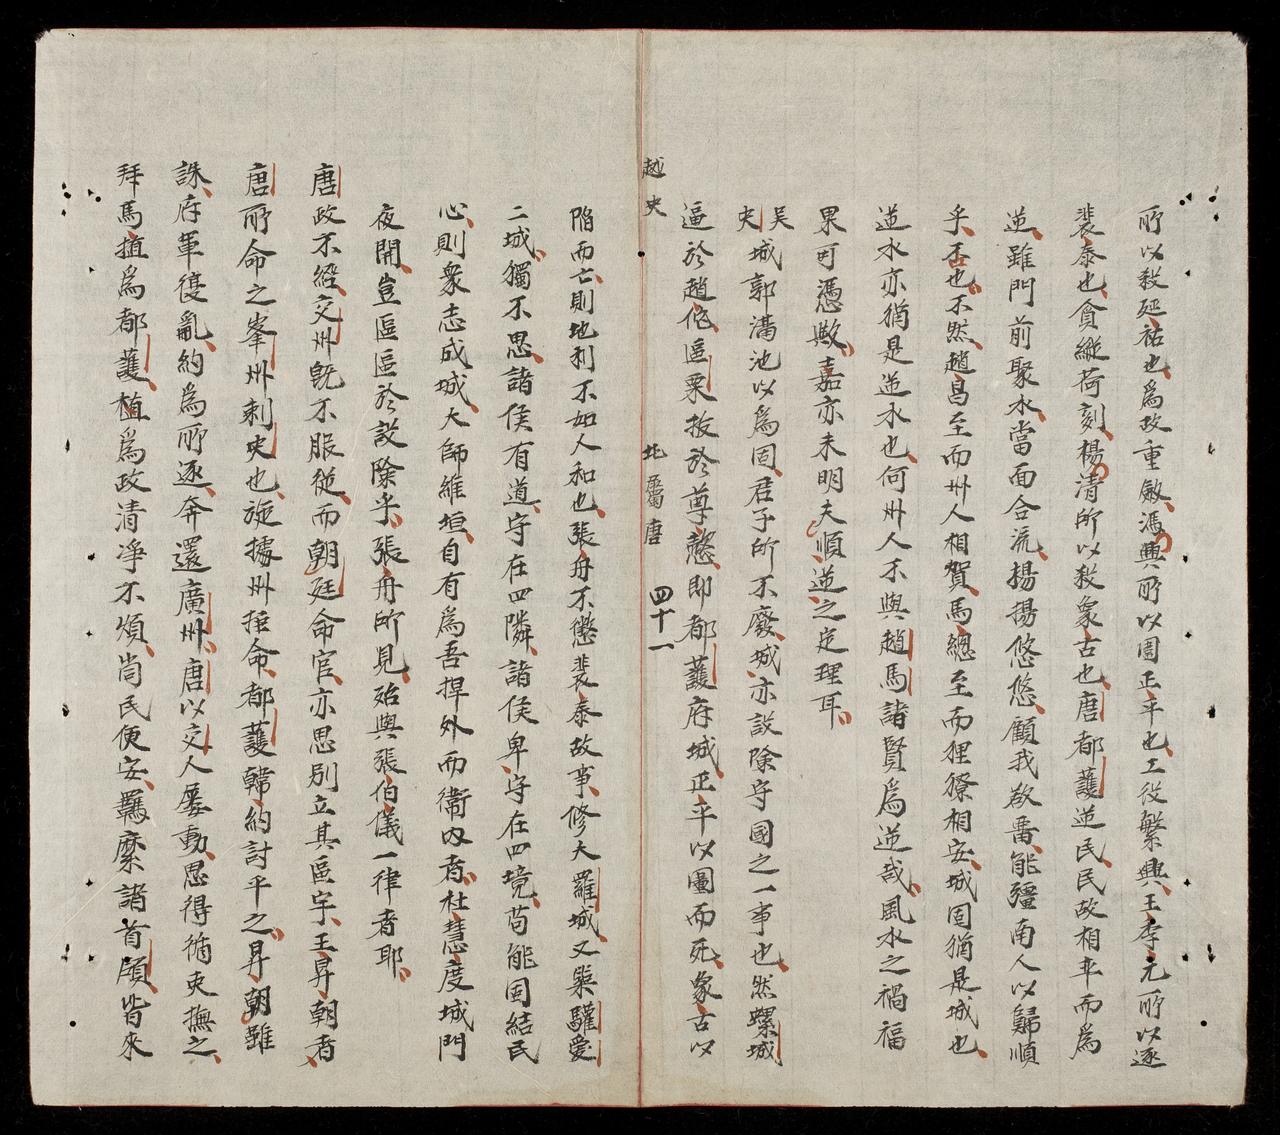 所以殺延祐也爲政重斂馮興所以圍正平也工役繁興王季元所以逐
裴泰也貪縱荷刻楊清所以殺象古也唐都護逆民民故相率而爲
逆雖門前聚水當面合流揚揚悠悠顧我欲畱能彊南人以歸順
乎否也不然趙昌至而州人相賀馬總至而狸獠相安城固猶是城也
逆水亦猶是逆水也何州人不與趙馬諸賢爲逆哉風水之禍福
果可憑歟嘉亦未明夫順逆之定理耳
吴史
城郭溝池以爲固君子所不廢城亦設除守國之一事也然螺城
逼於趙佗區粟拔於尊慤即都護府城正平以圍而死象古以
越史 北屬唐 四十一
陷而亡則地利不如人和也張舟不懲裴泰故事修大羅城又築驩愛
二城獨不思諸侯有道守在四隣諸侯卑守在四境苟能固結民
心則衆志成城大師維垣自有爲吾捍外而衛內者杜慧度城門
夜開豈區區於設除乎張舟所見殆與張伯儀一律者耶
唐政不綱交州旣不服從而朝廷命官亦思別立其區宇王昇朝者
唐所命之峯州刺史也旋據州拒命都護韓約討平之昇朝雖
誅府軍復亂約爲所逐奔還廣州唐以交人屡動思得循吏撫之
拜馬植爲都護植爲政清凈不煩尚民便安羈縻諸首領皆來